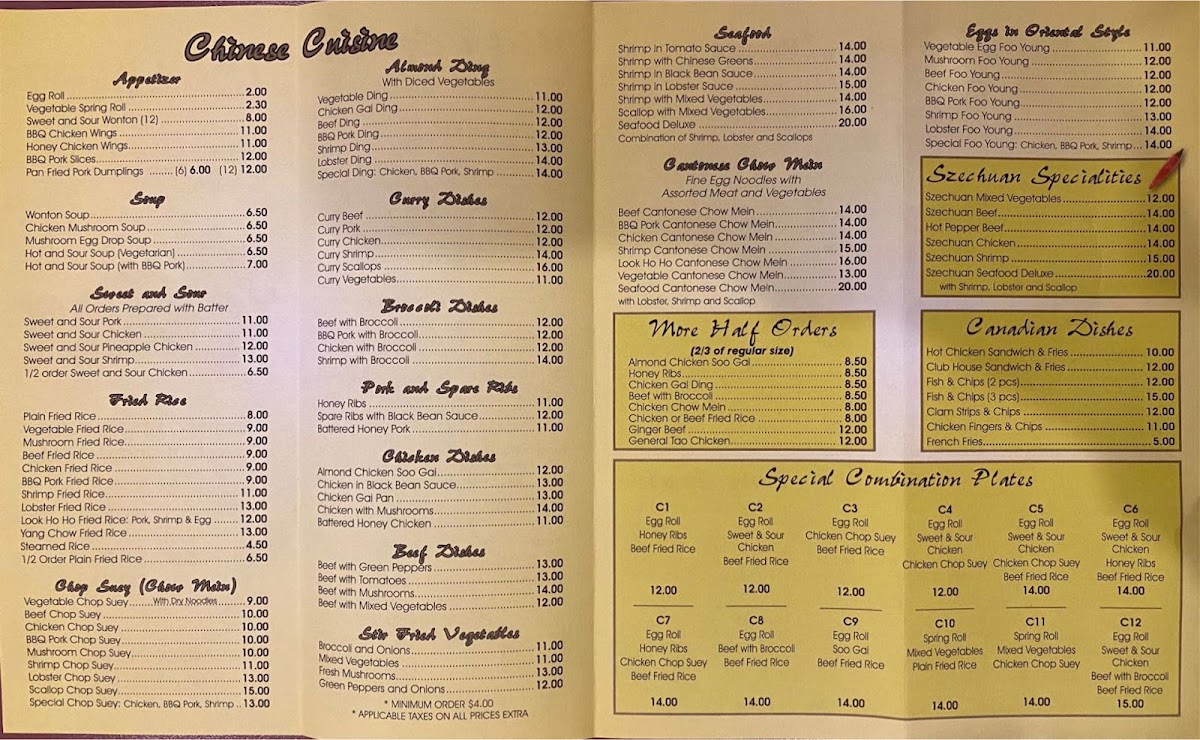 Chinese Cuisine
Appetizer
Egg Roll 2.00
Vegetable Spring Roll 2.30
Sweet and Sour Wonton (12) 8.00
BBQ Chicken Wings 11.00
Honey Chicken Wings 11.00
BBQ Pork Slices 12.00
Pan Fried Pork Dumplings (6) 6.00 (12) 12.00
Soup
Wonton Soup 6.50
Chicken Mushroom Soup 6.50
Mushroom Egg Drop Soup 6.50
Hot and Sour Soup (Vegetarian) 6.50
Hot and Sour Soup (with BBQ Pork) 7.00
Sweet and Sour
All Orders Prepared with Batter
Sweet and Sour Pork 11.00
Sweet and Sour Chicken 11.00
Sweet and Sour Pineapple Chicken 12.00
Sweet and Sour Shrimp 13.00
1/2 order Sweet and Sour Chicken 6.50
Fried Rice
Plain Fried Rice 8.00
Vegetable Fried Rice 9.00
Mushroom Fried Rice 9.00
Beef Fried Rice 9.00
Chicken Fried Rice 9.00
BBQ Pork Fried Rice 9.00
Shrimp Fried Rice 11.00
Lobster Fried Rice 13.00
Look Ho Ho Fried Rice: Pork, Shrimp & Egg 12.00
Yang Chow Fried Rice 13.00
Steamed Rice 4.50
1/2 Order Plain Fried Rice 6.50
Chop Suey (Chow Mein)
Vegetable Chop Suey With Dry Noodles 9.00
Beef Chop Suey 10.00
Chicken Chop Suey 10.00
BBQ Pork Chop Suey 10.00
Mushroom Chop Suey 10.00
Shrimp Chop Suey 11.00
Lobster Chop Suey 13.00
Scallop Chop Suey 15.00
Special Chop Suey: Chicken, BBQ Pork, Shrimp 13.00
Almond Ding
With Diced Vegetables
Vegetable Ding 11.00
Chicken Gai Ding 12.00
Beef Ding 12.00
BBQ Pork Ding 12.00
Shrimp Ding 13.00
Lobster Ding 14.00
Special Ding: Chicken, BBQ Pork, Shrimp 14.00
Curry Dishes
Curry Beef 12.00
Curry Pork 12.00
Curry Chicken 12.00
Curry Shrimp 14.00
Curry Scallops 16.00
Curry Vegetables 11.00
Broccoli Dishes
Beef with Broccoli 12.00
BBQ Pork with Broccoli 12.00
Chicken with Broccoli 12.00
Shrimp with Broccoli 14.00
Pork and Spare Ribs
Honey Ribs 11.00
Spare Ribs with Black Bean Sauce 12.00
Battered Honey Pork 11.00
Chicken Dishes
Almond Chicken Soo Gai 12.00
Chicken in Black Bean Sauce 13.00
Chicken Gai Pan 13.00
Chicken with Mushrooms 14.00
Battered Honey Chicken 11.00
Beef Dishes
Beef with Green Peppers 13.00
Beef with Tomatoes 13.00
Beef with Mushrooms 14.00
Beef with Mixed Vegetables 12.00
Stir Fried Vegetables
Broccoli and Onions 11.00
Mixed Vegetables 11.00
Fresh Mushrooms 13.00
Green Peppers and Onions 12.00
* MINIMUM ORDER $4.00
* APPLICABLE TAXES ON ALL PRICES EXTRA
Seafood
Shrimp in Tomato Sauce 14.00
Shrimp with Chinese Greens 14.00
Shrimp in Black Bean Sauce 14.00
Shrimp in Lobster Sauce 15.00
Shrimp with Mixed Vegetables 14.00
Scallop with Mixed Vegetables 16.00
Seafood Deluxe 20.00
Combination of Shrimp, Lobster and Scallops
Cantonese Chow Mein
Fine Egg Noodles with
Assorted Meat and Vegetables
Beef Cantonese Chow Mein 14.00
BBQ Pork Cantonese Chow Mein 14.00
Chicken Cantonese Chow Mein 14.00
Shrimp Cantonese Chow Mein 15.00
Look Ho Ho Cantonese Chow Mein 16.00
Vegetable Cantonese Chow Mein 13.00
Seafood Cantonese Chow Mein 20.00
with Lobster, Shrimp and Scallop
More Half Orders
(2/3 of regular size)
Almond Chicken Soo Gai 8.50
Honey Ribs 8.50
Chicken Gai Ding 8.50
Beef with Broccoli 8.50
Chicken Chow Mein 8.00
Chicken or Beef Fried Rice 8.00
Ginger Beef 12.00
General Tao Chicken 12.00
Eggs in Oriental Style
Vegetable Egg Foo Young 11.00
Mushroom Foo Young 12.00
Beef Foo Young 12.00
Chicken Foo Young 12.00
BBQ Pork Foo Young 12.00
Shrimp Foo Young 13.00
Lobster Foo Young 14.00
Special Foo Young: Chicken, BBQ Pork, Shrimp 14.00
Szechuan Specialities
Szechuan Mixed Vegetables 12.00
Szechuan Beef 14.00
Hot Pepper Beef 14.00
Szechuan Chicken 14.00
Szechuan Shrimp 15.00
Szechuan Seafood Deluxe 20.00
with Shrimp, Lobster and Scallop
Canadian Dishes
Hot Chicken Sandwich & Fries 10.00
Club House Sandwich & Fries 12.00
Fish & Chips (2 pcs) 12.00
Fish & Chips (3 pcs) 15.00
Clam Strips & Chips 12.00
Chicken Fingers & Chips 11.00
French Fries 5.00
Special Combination Plates
C1
Egg Roll
Honey Ribs
Beef Fried Rice
12.00
C2
Egg Roll
Sweet & Sour
Chicken
Beef Fried Rice
12.00
C3
Egg Roll
Chicken Chop Suey
Beef Fried Rice
12.00
C4
Egg Roll
Sweet & Sour
Chicken
Chicken Chop Suey
12.00
C5
Egg Roll
Sweet & Sour
Chicken
Chicken Chop Suey
Beef Fried Rice
14.00
C6
Egg Roll
Sweet & Sour
Chicken
Honey Ribs
Beef Fried Rice
14.00
C7
Egg Roll
Honey Ribs
Chicken Chop Suey
Beef Fried Rice
14.00
C8
Egg Roll
Beef with Broccoli
Beef Fried Rice
14.00
C9
Egg Roll
Soo Gai
Beef Fried Rice
14.00
C10
Spring Roll
Mixed Vegetables
Plain Fried Rice
14.00
C11
Spring Roll
Mixed Vegetables
Chicken Chop Suey
14.00
C12
Egg Roll
Sweet & Sour
Chicken
Beef with Broccoli
Beef Fried Rice
15.00